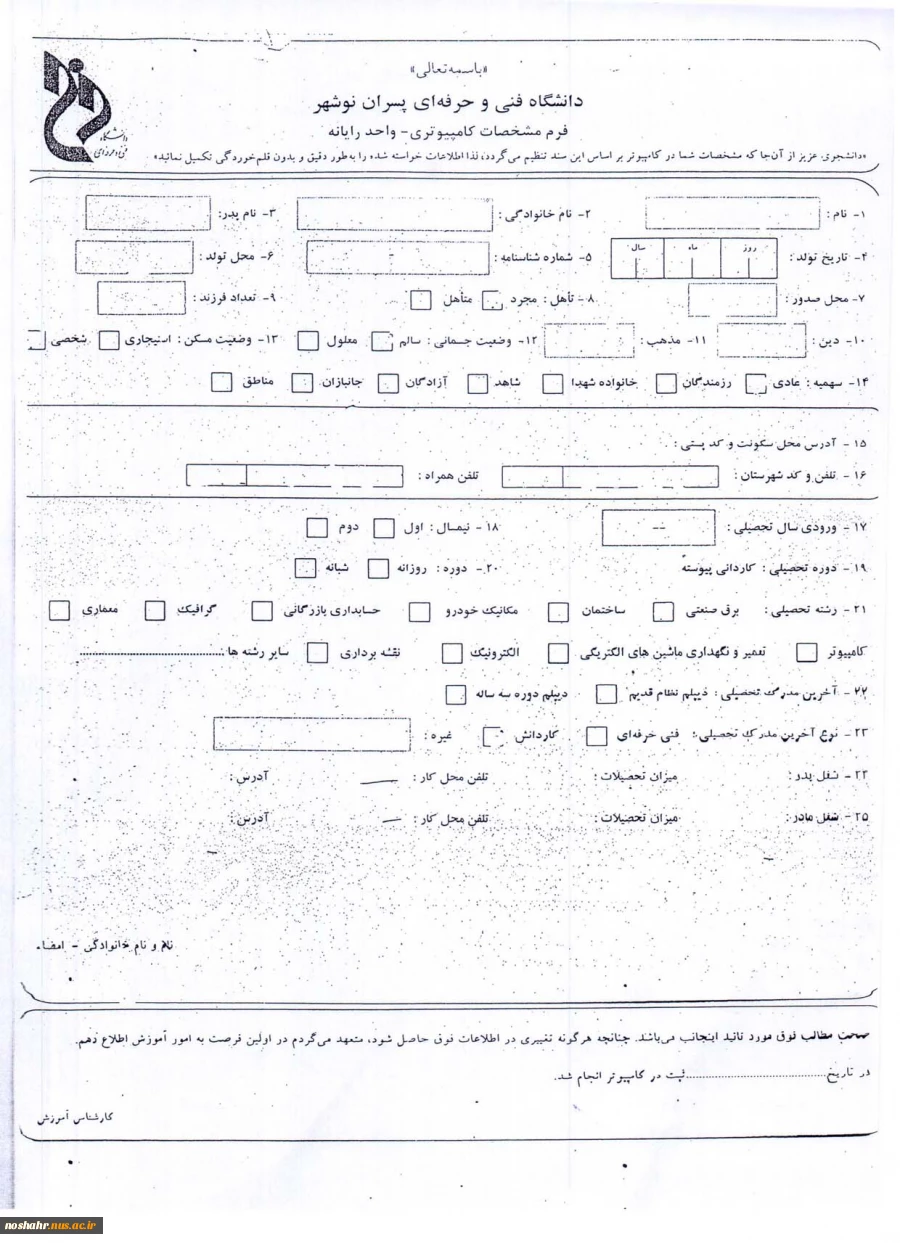 «باسمه تعالی»
دانشگاه فنی و حرفه‌ای پسران نوشهر
فرم مشخصات کامپیوتری- واحد رایانه
دانشگاه
فنی و حرفه‌ای
«دانشجوی عزیز از آن‌جا که مشخصات شما در کامپیوتر بر اساس این سند تنظیم می‌گردد، لذا اطلاعات خواسته شده را به‌طور دقیق و بدون قلم‌خوردگی تکمیل نمائید»
۱- نام : ۲- نام خانوادگی : ۳- نام پدر:
۴- تاریخ تولد : روز ماه سال ۵- شماره شناسنامه : ۶- محل تولد :
۷- محل صدور : ۸- تأهل : مجرد متأهل ۹- تعداد فرزند :
۱۰- دین : ۱۱- مذهب : ۱۲- وضعیت جسمانی : سالم معلول ۱۳- وضعیت مسکن : استیجاری شخصی
۱۴- سهمیه : عادی رزمندگان خانواده شهدا شاهد آزادگان جانبازان مناطق
۱۵ - آدرس محل سکونت و کد پستی :
۱۶ - تلفن و کد شهرستان : تلفن همراه :
۱۷ - ورودی سال تحصیلی : ۱۸ - نیمسال : اول دوم
۱۹ - دوره تحصیلی : کاردانی پیوسته ۲۰- دوره : روزانه شبانه
۲۱ - رشته تحصیلی : برق صنعتی ساختمان مکانیک خودرو حسابداری بازرگانی گرافیک معماری
کامپیوتر تعمیر و نگهداری ماشین های الکتریکی الکترونیک نقشه برداری سایر رشته ها :......................................
۲۲ - آخرین مدرک تحصیلی : دیپلم نظام قدیم دیپلم دوره سه ساله
۲۳ - نوع آخرین مدرک تحصیلی : فنی حرفه‌ای کاردانش غیره :
۲۴ - شغل پدر : میزان تحصیلات : تلفن محل کار : آدرس :
۲۵ - شغل مادر : میزان تحصیلات : تلفن محل کار : آدرس :
نام و نام خانوادگی - امضاء
صحت مطالب فوق مورد تائید اینجانب می‌باشد. چنانچه هرگونه تغییری در اطلاعات فوق حاصل شود، متعهد می‌گردم در اولین فرصت به امور آموزش اطلاع دهم.
در تاریخ......................................ثبت در کامپیوتر انجام شد.
کارشناس آموزش
noshahr.nus.ac.ir